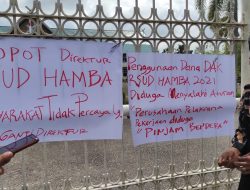 OPOT Direktur
SUD HAMBA
YARAKAT Tidak Percaya
GANTI DIREKTUR
Penggunaan Dana DAK
RSUD HAMBA 2021
Diduga Menyalahi Aturan
Perusahaan Pelaksana
diduga
"PINJAM BENDERA"